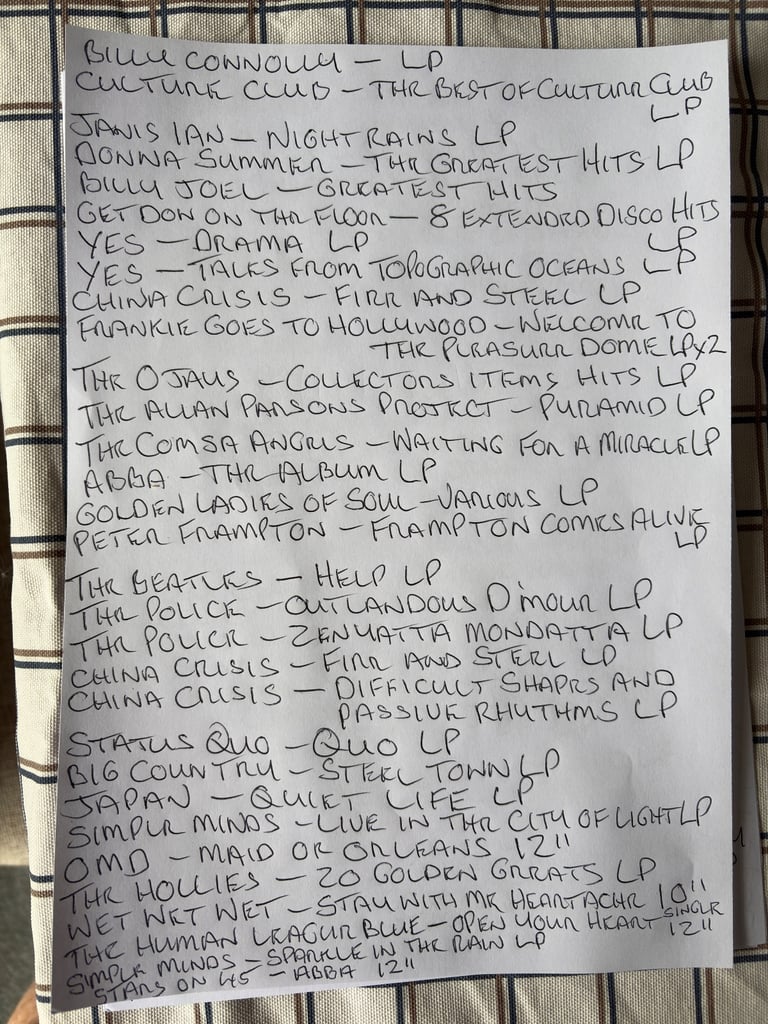 BILLY CONNOLLY – LP
CULTURE CLUB – THE BEST OF CULTURE CLUB
LP
JANIS IAN – NIGHT RAINS LP
DONNA SUMMER – THE GREATEST HITS LP
BILLY JOEL – GREATEST HITS
GET DON ON THE FLOOR – 8 EXTENDED DISCO HITS
LP
YES – DRAMA LP
YES – TALES FROM TOPOGRAPHIC OCEANS LP
CHINA CRISIS – FIRE AND STEEL LP
FRANKIE GOES TO HOLLYWOOD – WELCOME TO
THE PLEASURE DOME LPx2
THE OJAYS – COLLECTORS ITEMS HITS LP
THE ALLAN PARSONS PROJECT – PYRAMID LP
THE COMSA ANGELS – WAITING FOR A MIRACLE LP
ABBA – THE ALBUM LP
GOLDEN LADIES OF SOUL – VARIOUS LP
PETER FRAMPTON – FRAMPTON COMES ALIVE
LP
THE BEATLES – HELP LP
THE POLICE – OUTLANDOUS D'MOUR LP
THE POLICE – ZENYATTA MONDATTA LP
CHINA CRISIS – FIRE AND STEEL LP
CHINA CRISIS – DIFFICULT SHAPES AND
PASSIVE RHYTHMS LP
STATUS QUO – QUO LP
BIG COUNTRY – STEEL TOWN LP
JAPAN – QUIET LIFE LP
SIMPLE MINDS – LIVE IN THE CITY OF LIGHT LP
OMD – MAID OR ORLEANS 12"
THE HOLLIES – 20 GOLDEN GREATS LP
WET WET WET – STAY WITH ME HEARTACHE 10"
SINGLE
THE HUMAN LEAGUE BLUE – OPEN YOUR HEART 12"
SIMPLE MINDS – SPARKLE IN THE RAIN LP
STARS ON 45 – ABBA 12"